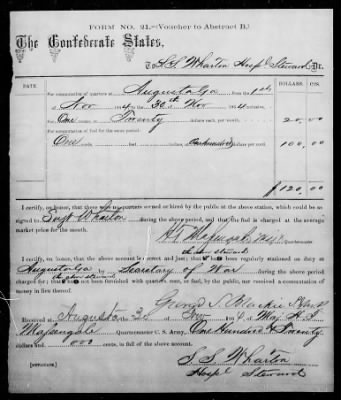 FORM NO. 21.—(Voucher to Abstract B.)
The Confederate States,
To S.S. Wharton Hosp'l Steward Dr.
DATE. DOLLARS. CTS.
For commutation of quarters at Augusta Ga from the 1st
Nov 4 to 30th Nov 4
for One rooms, at Twenty dollars each per month. 20,00
For commutation of fuel for the same period:
One cords, feet, at One hundred dollars each. 100,00
$120,00
I certify, on honor, that there are no quarters owned or hired by the public at the above station, which could be as-
signed to during the above period, and that the fuel is charged at the average
market price for the month.
Quartermaster
I certify, on honor, that the above account is correct and just; that I was regularly stationed on duty at
Augusta Ga by Secretary of War during the above period
charged for; that I have not been furnished with quarters, rent, or fuel, by the public, nor received a commutation of
money in lieu thereof.
Received at Augusta 30 Nov 4, of Maj. H. I.
Quartermaster C. S. Army, One Hundred & Twenty
dollars and 000 cents, in full of the above account.
S S Wharton
Hosp'l Steward
[DUPLICATE.]